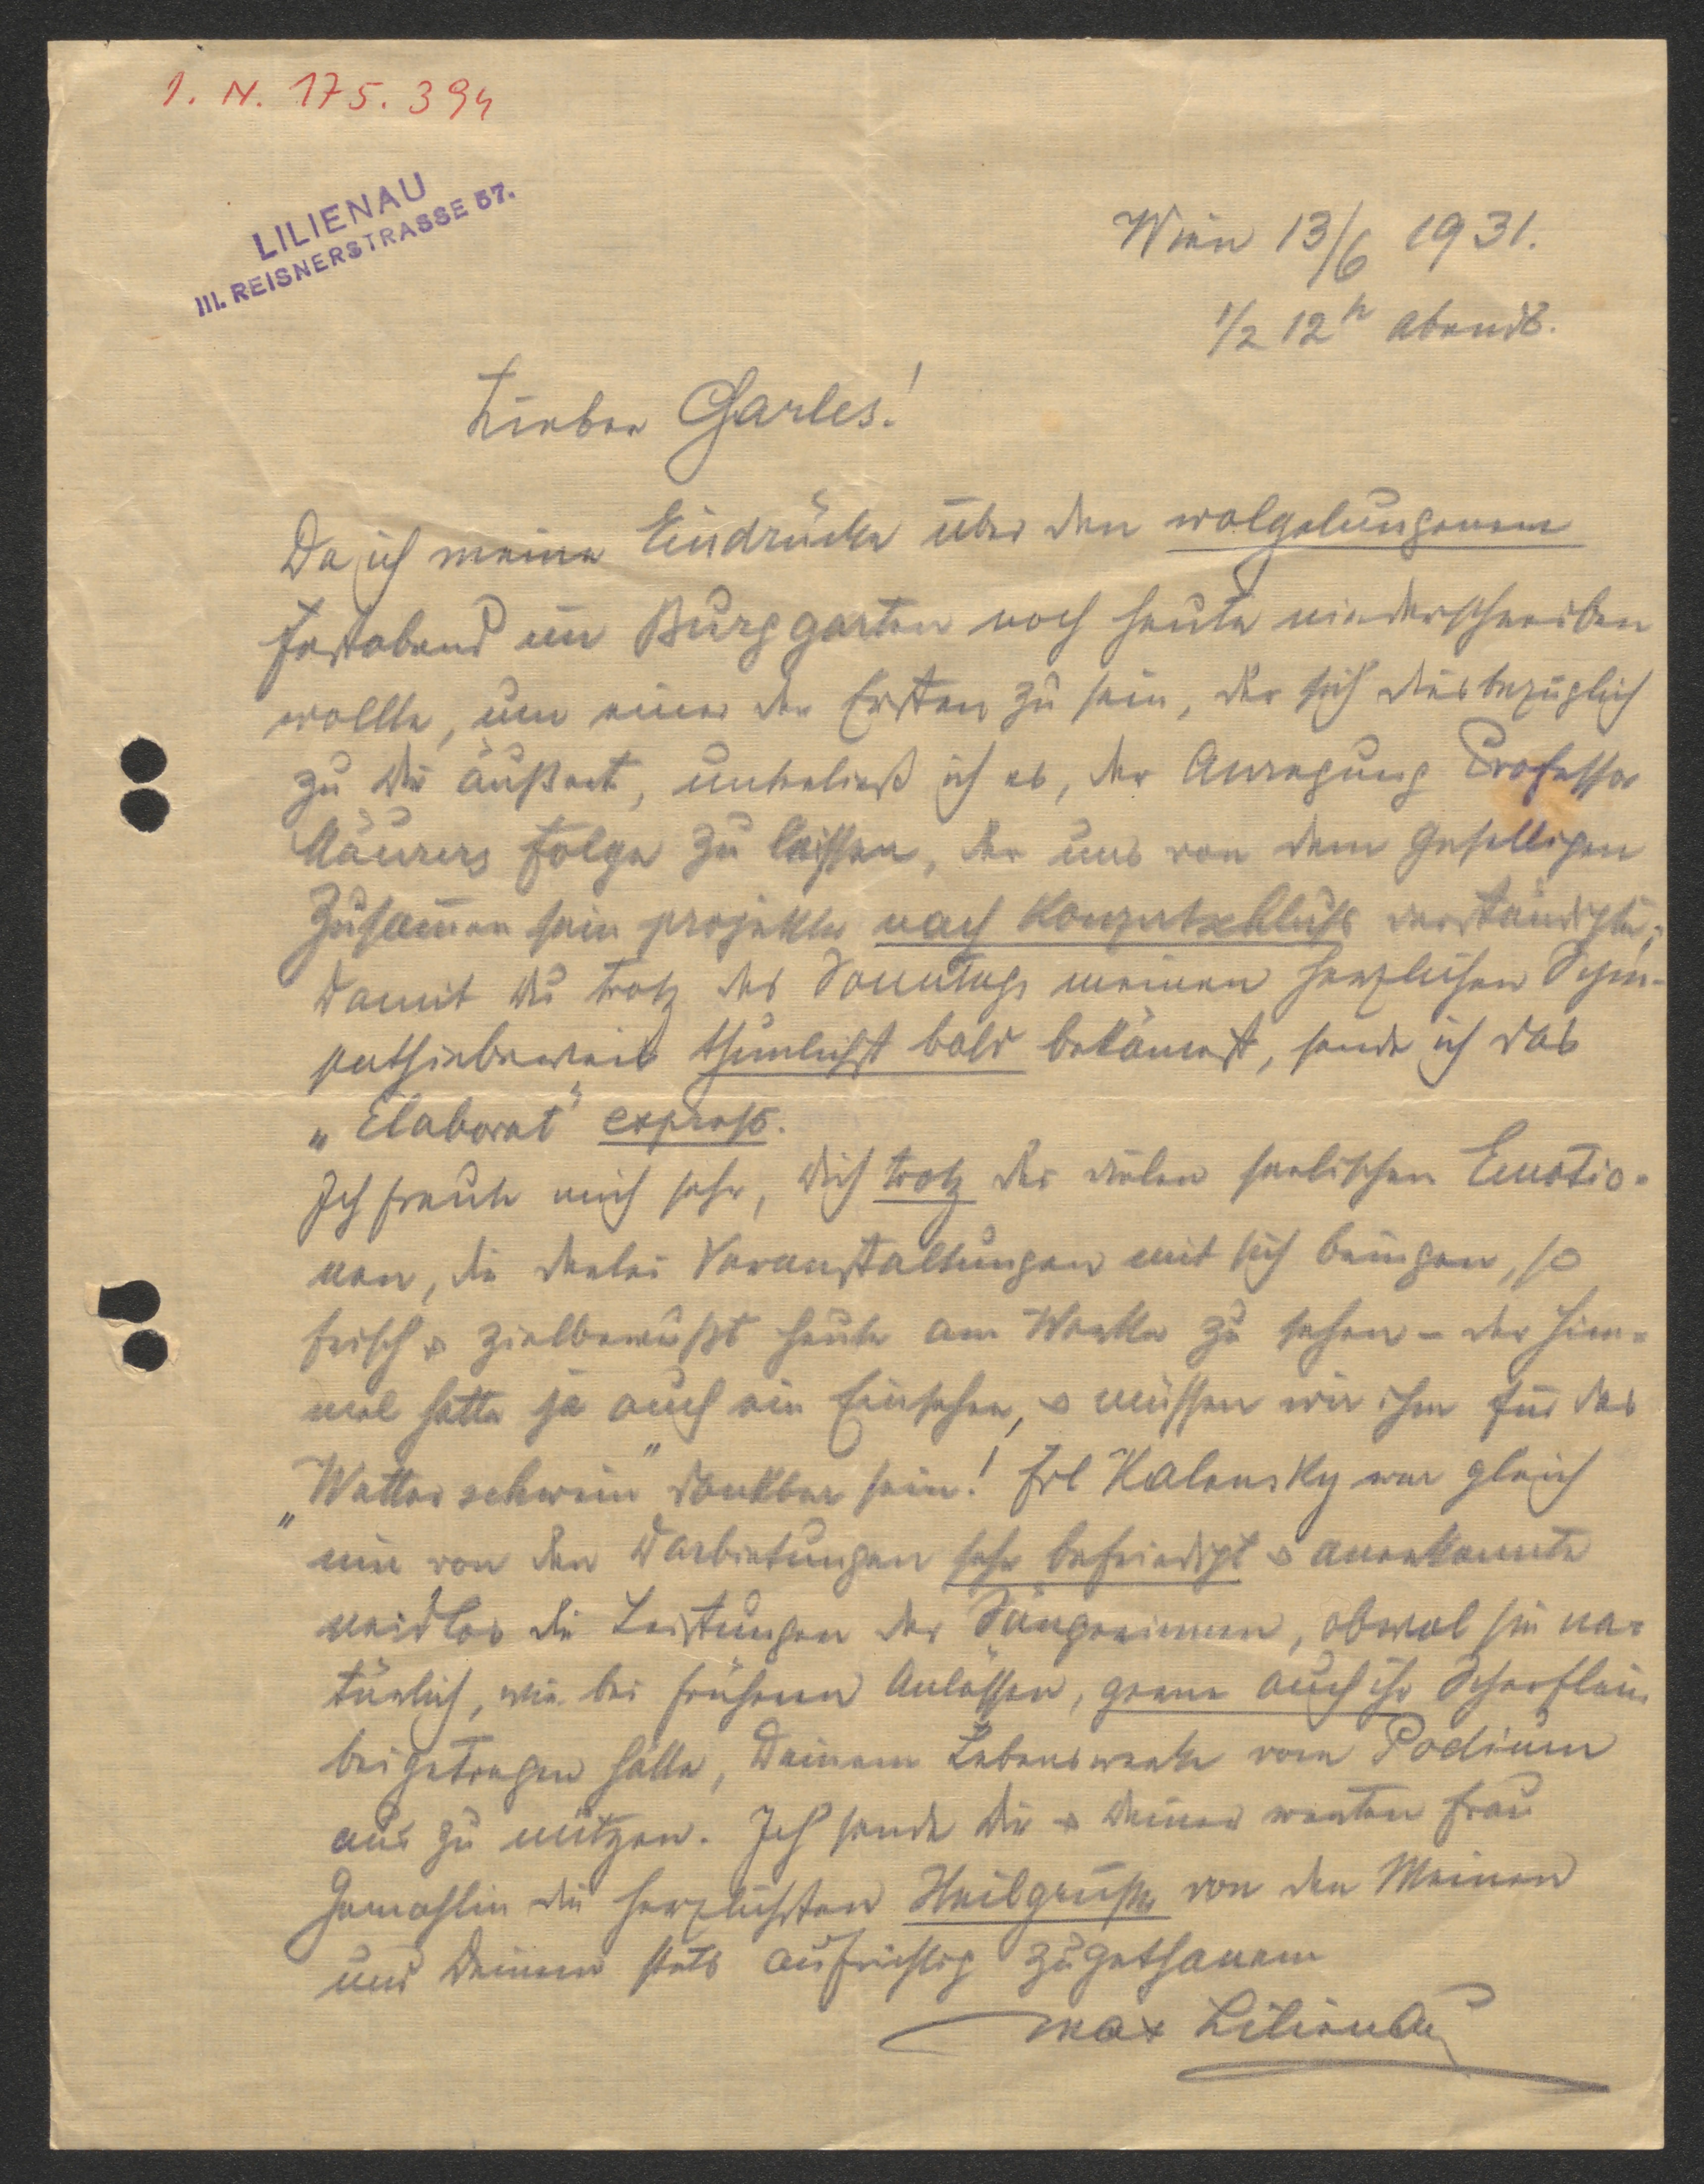 I. N. 175.394
LILIENAU
III. REISNERSTRASSE 57.
Wien 13/6 1931.
1/2 12h abends.
Lieber Charles!
Da ich meine Eindrücke über den wolgelungenen
Festabend im Burggarten noch heute niederschreiben
wollte, um einer der Ersten zu sein, der sich diesbezüglich
zu Dir äußert, unterließ ich es, der Anregung Professor
Maurers Folge zu leisten, der uns von dem geselligen
Zusammensein projekte nach Konzertschluß verständigte;
damit Du trotz des Sonntags meinen herzlichen Sym-
pathiebeweis thunlichst bald bekämest, sende ich das
„Elaborat“ express.
Ich freute mich sehr, Dich trotz der vielen seelischen Emotio-
nen, die derlei Veranstaltungen mit sich bringen, so
frisch & zielbewußt heute am Werke zu sehen – der Him-
mel hatte ja auch ein Einsehen, & müssen wir ihm für das
„Wetterschwein“ dankbar sein! Frl Kalensky war gleich
mir von den Darbietungen sehr befriedigt & anerkannte
neidlos die Leistungen der Sängerinnen, obwol sie na-
türlich, wie bei früheren Anlässen, gerne auch ihr Scherflein
beigetragen hätte, Deinem Lebenswerke vom Podium
aus zu nützen. Ich sende Dir & Deiner werten Frau
Gemahlin die herzlichsten Heilgrüße von den Meinen
und Deinem stets aufrichtig zugethanem
Max Lilienau